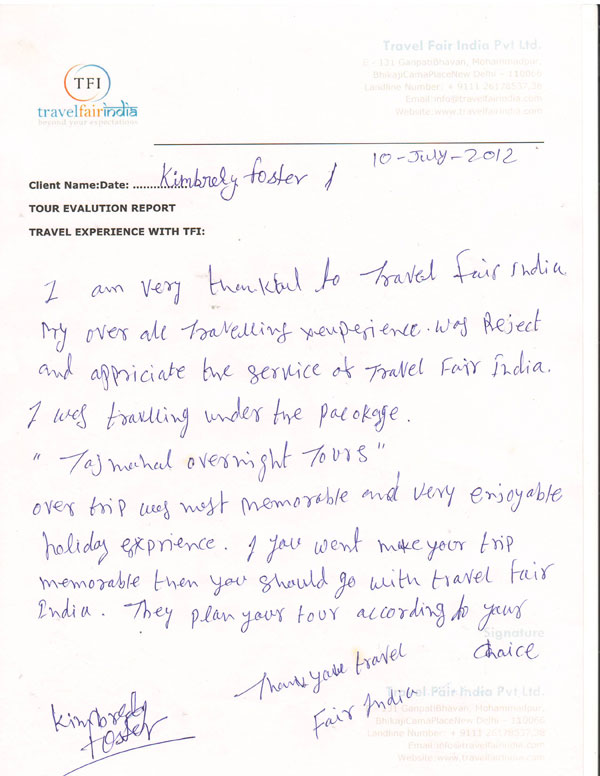 Travel Fair India Pvt Ltd.
E - 131 GanpatiBhavan, Mohammadpur,
BhikajiCamaPlaceNew Delhi - 110066
Landline Number: + 9111 26178537,38
Email:info@travelfairindia.com
Website:www.travelfairindia.com
TFI
travelfairindia
beyond your expectations
10-July-2012
Client Name:Date: ................. Kimbrely foster
TOUR EVALUTION REPORT
TRAVEL EXPERIENCE WITH TFI:
I am very thankful to Travel fair India
My over all travelling was Reject
and appriciate the service of Travel Fair India.
I was travlling under the pacokage.
" Tajmahal overnight Tours "
over trip was most memorable and very enjoyable
holiday exprience. If you went make your trip
memorable then you should go with travel fair
India. They plan your tour according to your
Signature
choice
Thank you travel
Fair India
Kimbrely
foster
Travel Fair India Pvt Ltd.
E - 131 GanpatiBhavan, Mohammadpur,
BhikajiCamaPlaceNew Delhi - 110066
Landline Number: + 9111 26178537,38
Email:info@travelfairindia.com
Website:www.travelfairindia.com